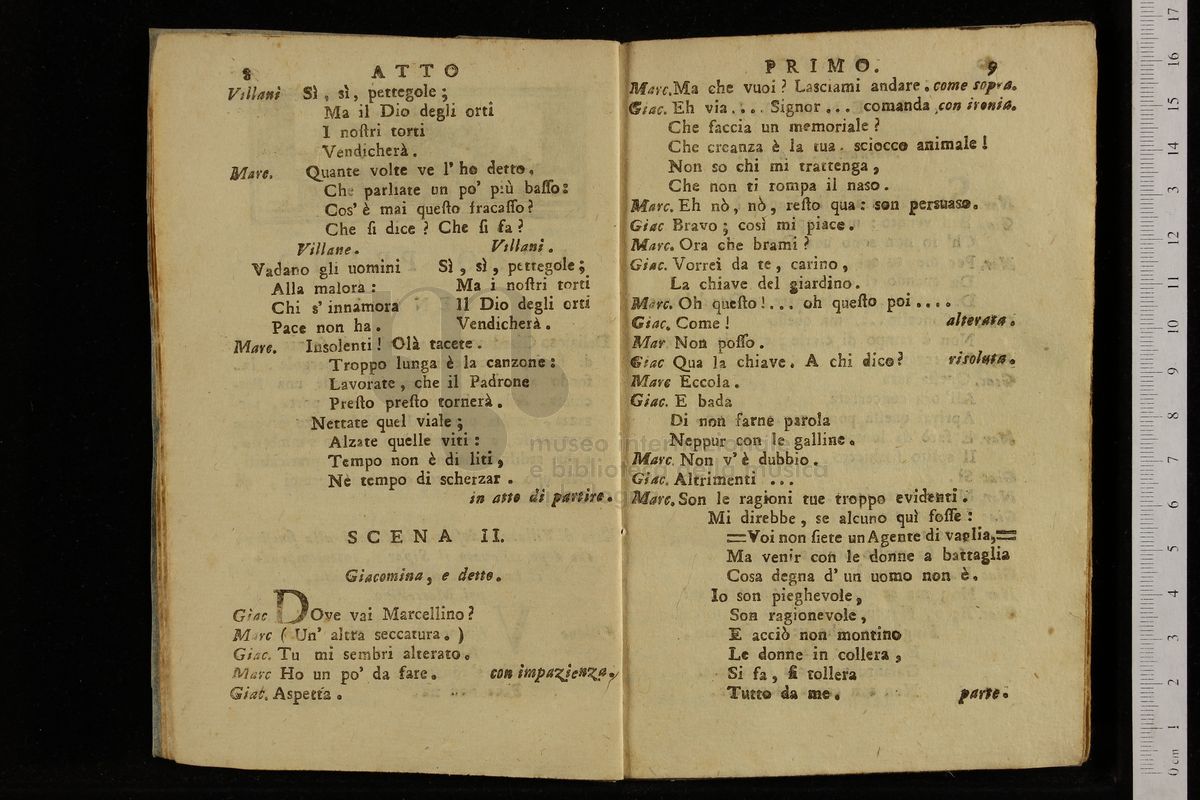 8 ATTO
Villani Sì, sì, pettegole;
Ma il Dio degli orti
I noſtri torti
Vendicherà.
Marc. Quante volte ve l' ho detto,
Che parliate un po' più baſſo:
Cos' è mai queſto fracaſſo?
Che ſi dice? Che ſi fa?
Villane.
Vadano gli uomini
Alla malora:
Chi s' innamora
Pace non ha.
Villani.
Sì, sì, pettegole;
Ma i noſtri torti
Il Dio degli orti
Vendicherà.
Marc. Insolenti! Olà tacete.
Troppo lunga è la canzone:
Lavorate, che il Padrone
Preſto preſto tornerà.
Nettate quel viale;
Alzate quelle viti:
Tempo non è di liti,
Nè tempo di scherzar.
in atto di partire.
SCENA II.
Giacomina, e detto.
Giac DOve vai Marcellino?
Marc ( Un' altra seccatura. )
Giac. Tu mi sembri alterato.
Marc Ho un po' da fare. con impazienza.
Giac. Aspetta.
PRIMO. 9
Marc. Ma che vuoi? Lasciami andare. come sopra.
Giac. Eh via.... Signor... comanda, con ironia.
Che faccia un memoriale?
Che creanza è la tua. sciocco animale!
Non so chi mi trattenga,
Che non ti rompa il naso.
Marc. Eh nò, nò, reſto qua: son persuaso.
Giac Bravo; così mi piace.
Marc. Ora che brami?
Giac. Vorrei da te, carino,
La chiave del giardino.
Marc. Oh queſto!... oh queſto poi....
Giac. Come! alterata.
Mar Non poſſo.
Giac Qua la chiave. A chi dico? risoluta.
Marc Eccola.
Giac. E bada
Di non farne parola
Neppur con le galline.
Marc. Non v' è dubbio.
Giac. Altrimenti ...
Marc. Son le ragioni tue troppo evidenti.
Mi direbbe, se alcuno quì foſſe:
=Voi non ſiete un Agente di vaglia,=
Ma venir con le donne a battaglia
Cosa degna d' un uomo non è.
Io son pieghevole,
Son ragionevole,
E acciò non montino
Le donne in collera,
Si fa, ſi tollera
Tutto da me. parte.
museo internazionale
e biblioteca della musica